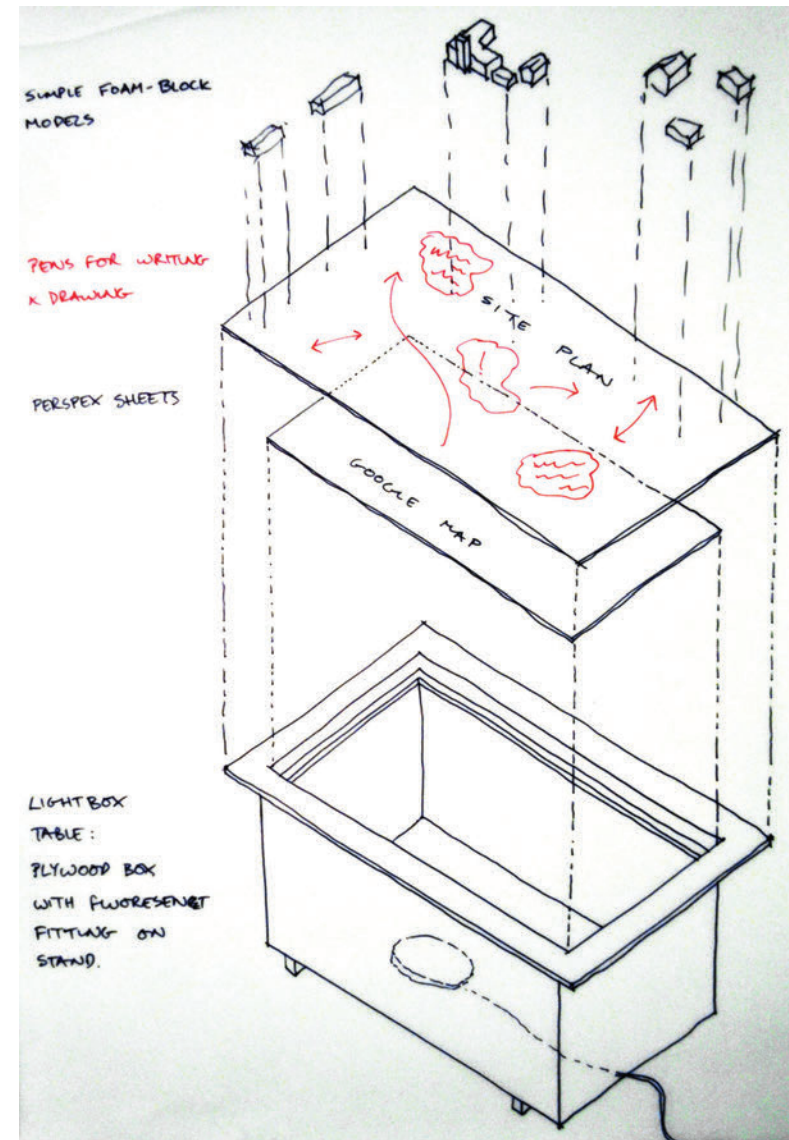 SIMPLE FOAM-BLOCK
MODELS
PENS FOR WRITING
& DRAWING
SITE PLAN
PERSPEX SHEETS
GOOGLE MAP
LIGHTBOX
TABLE:
PLYWOOD BOX
WITH FLUORESENT
FITTING ON
STAND.